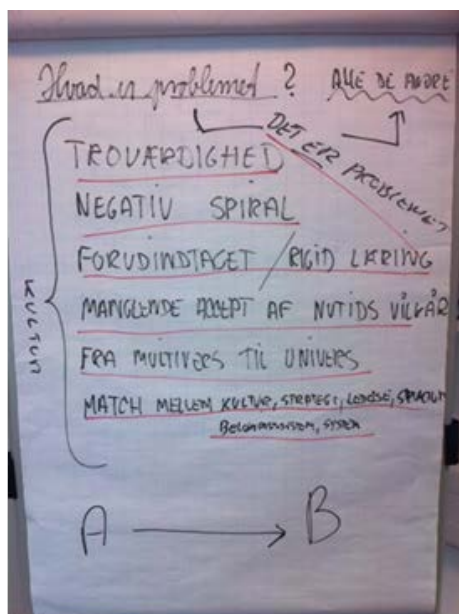 Hvad er problemet ? ALLE DE ANDRE
DET ER PROBLEMET
TROVÆRDIGHED
NEGATIV SPIRAL
FORUDINDTAGET / RIGID LÆRING
MANGLENDE ACCEPT AF NUTIDS VILKÅR
FRA MULTIVERS TIL UNIVERS
MATCH MELLEM KULTUR, STRATEGI, LEDELSE,
SYSTEM
KULTUR
A B